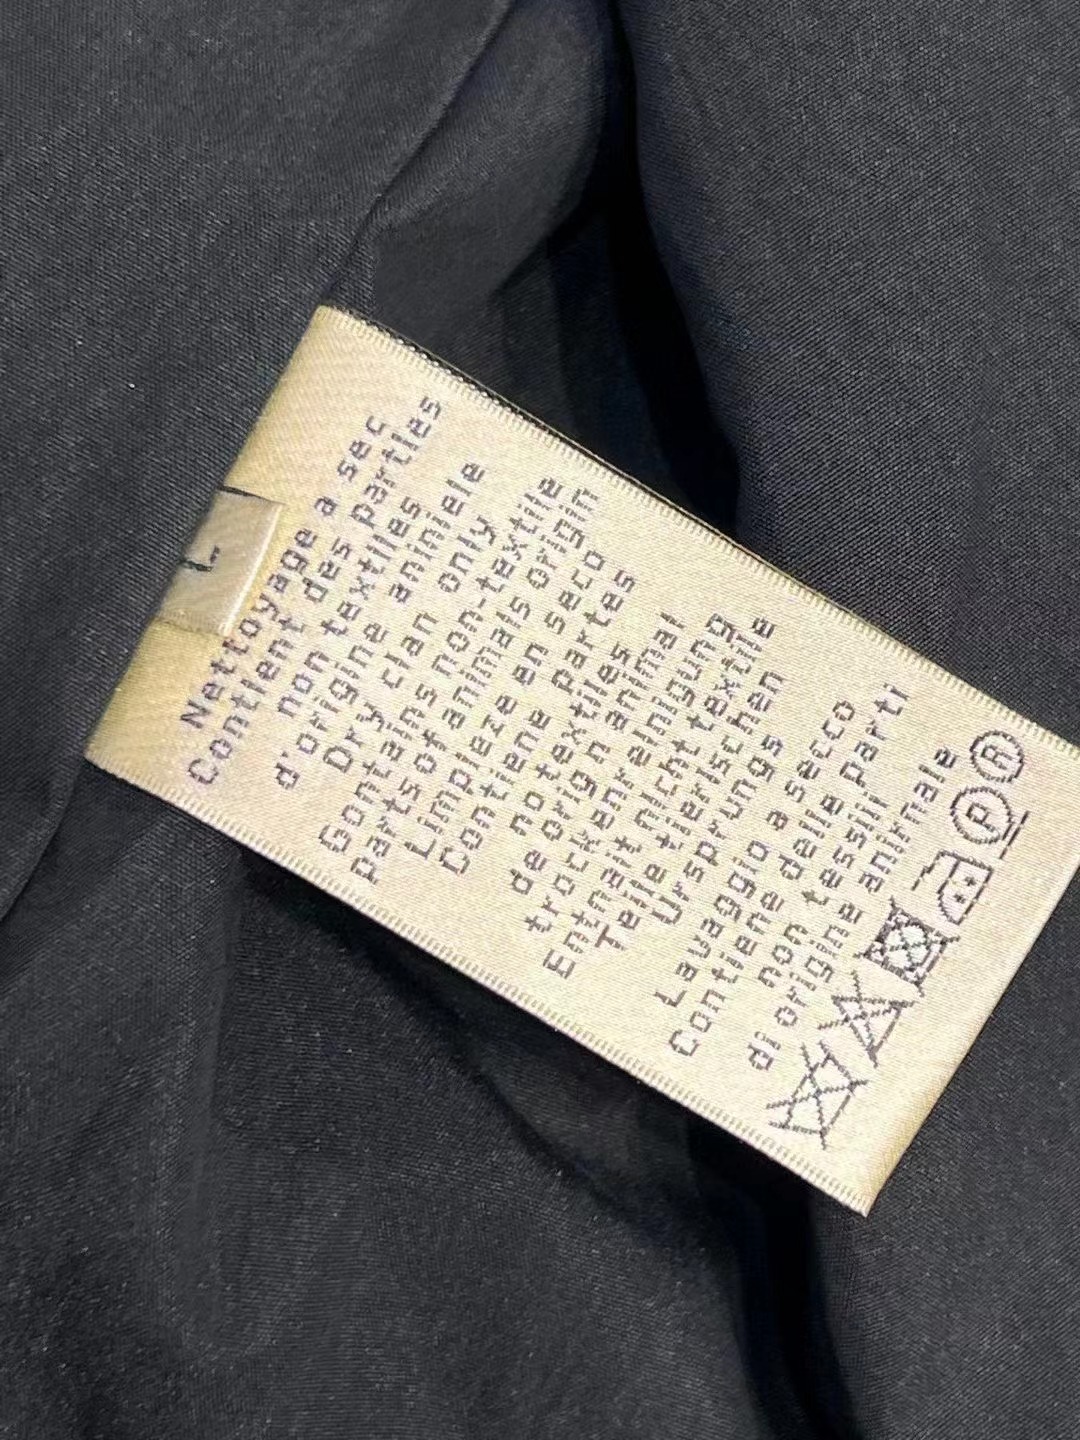 L
Nettoyage a sec
Contlent des partles
non textlles
d'orlgine aniniele
Dry clan only
Gontains non-textile
partsofanimals orign
Limpleze en seco
Contiene partes
no textiles
de orign animal
trockenrelnigung
Entnait nicht textile
Teile tierischen
Ursprungs
Lavaggio a secco
Contiene delle parti
non tessili
di origine anirnale
P